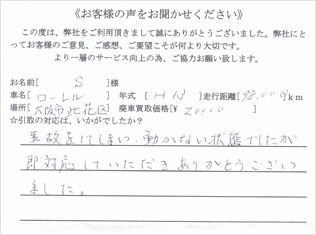 《お客様の声をお聞かせください》
この度は、弊社をご利用頂きまして誠にありがとうございました。弊社にと
ってお客様のご意見、ご感想、ご要望こそが何より大切です。
より一層のサービス向上の為、ご協力お願い致します。
お名前[ S ]様
車名[ ローレル ] 年式[ H13 ]走行距離[98,000]km
場所[大阪市此花区] 廃車買取価格[¥ 20000 ]
☆引取の対応は、いかがでしたか?
事故をしてしまい、動かない状態でしたが
即対応していただきありがとうござい
ました。